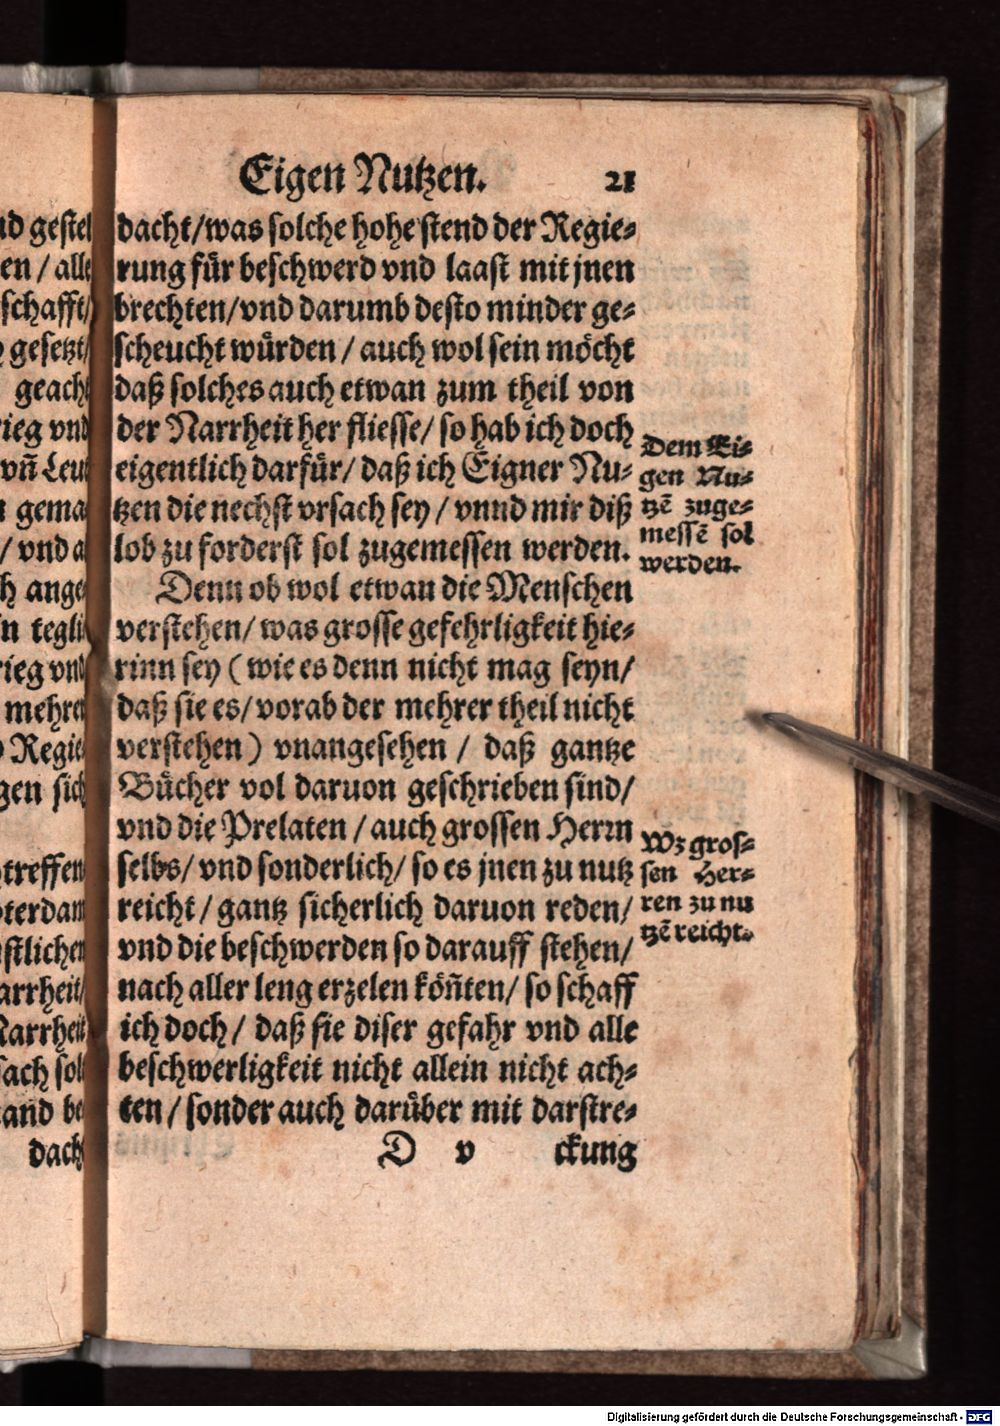 Eigen Nutzen. 21
dacht/was solche hohe stend der Regie-
rung für beschwerd vnd laast mit jnen
brechten/vnd darumb desto minder ge-
scheucht würden/auch wol sein möcht
daß solches auch etwan zum theil von
der Narrheit her fliesse/so hab ich doch
eigentlich darfür/daß ich Eigner Nu-
tzen die nechst vrsach sey/vnnd mir diß
lob zu forderst sol zugemessen werden.
Dem Ei-
gen Nu-
tzē zuge-
messē sol
werden.
Denn ob wol etwan die Menschen
verstehen/was grosse gefehrligkeit hie-
rinn sey (wie es denn nicht mag seyn/
daß sie es/vorab der mehrer theil nicht
verstehen) vnangesehen/daß gantze
Bücher vol daruon geschrieben sind/
vnd die Prelaten/auch grossen Herrn
selbs/vnd sonderlich/so es jnen zu nutz
reicht/gantz sicherlich daruon reden/
vnd die beschwerden so darauff stehen/
nach aller leng erzelen köñten/so schaff
ich doch/daß sie diser gefahr vnd alle
beschwerligkeit nicht allein nicht ach-
ten/sonder auch darüber mit darstre-
Wz gros-
sen Her-
ren zu nu
tzē reicht.
D v ckung
nd gestel
en/alle
schafft/
gesetzt/
geacht
rieg vnd
vñ Leut
gema
/vnd a
h ange
in tegli
rieg vnd
mehrer
Regie
gen sich
treffen
terdam
stlichen
arrheit/
Narrheit
sach sol
and be
dach
Digitalisierung gefördert durch die Deutsche Forschungsgemeinschaft - DFG